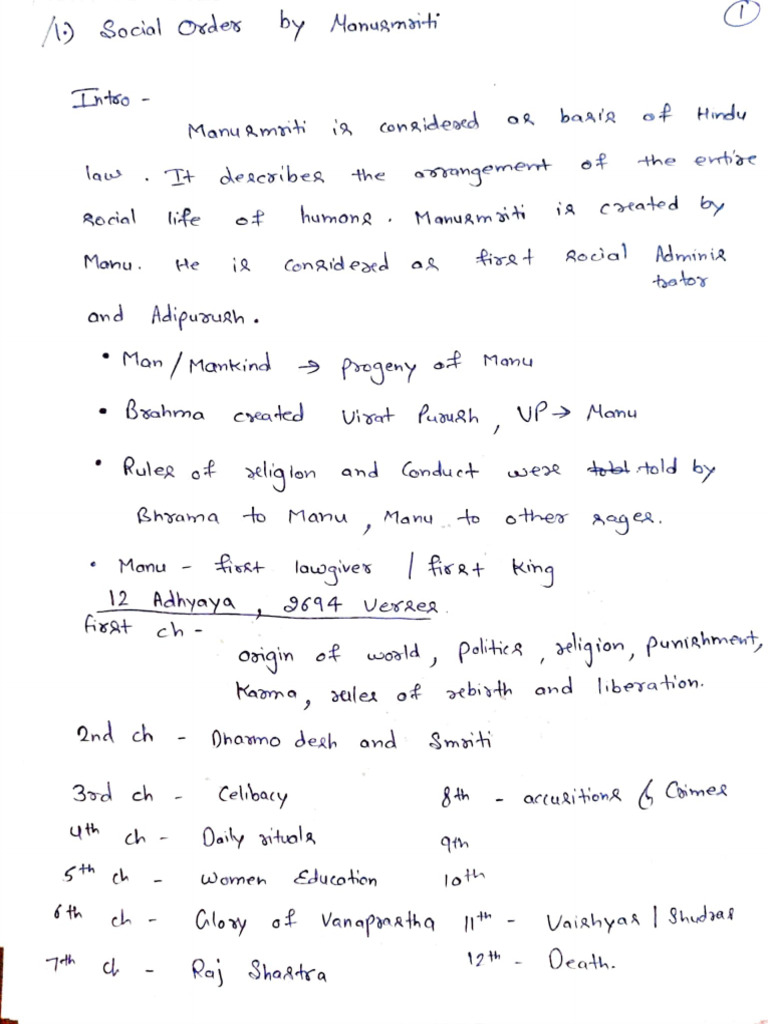 1.) Social Order by Manusmriti
1
Intro -
Manusmriti is considered as basis of Hindu
law. It describes the arrangement of the entire
social life of humans. Manusmriti is created by
Manu. He is considered as first social Adminis
trator
and Adipurush.
• Man / Mankind → progeny of Manu
• Brahma created Virat Purush, VP → Manu
• Rules of religion and Conduct were told by
Bhrama to Manu, Manu to other sages.
• Manu - first lawgiver / first king
12 Adhyaya, 2694 verses
first ch -
origin of world, politics, religion, punishment,
Karma, rules of rebirth and liberation.
2nd ch - Dharmo desh and Smriti
3rd ch - Celibacy 8th - accusitions & Crimes
4th ch - Daily rituals 9th
5th ch - Women Education 10th
6th ch - Glory of Vanaprastha 11th - Vaishyas | Shudras
7th ch - Raj Shastra 12th - Death.